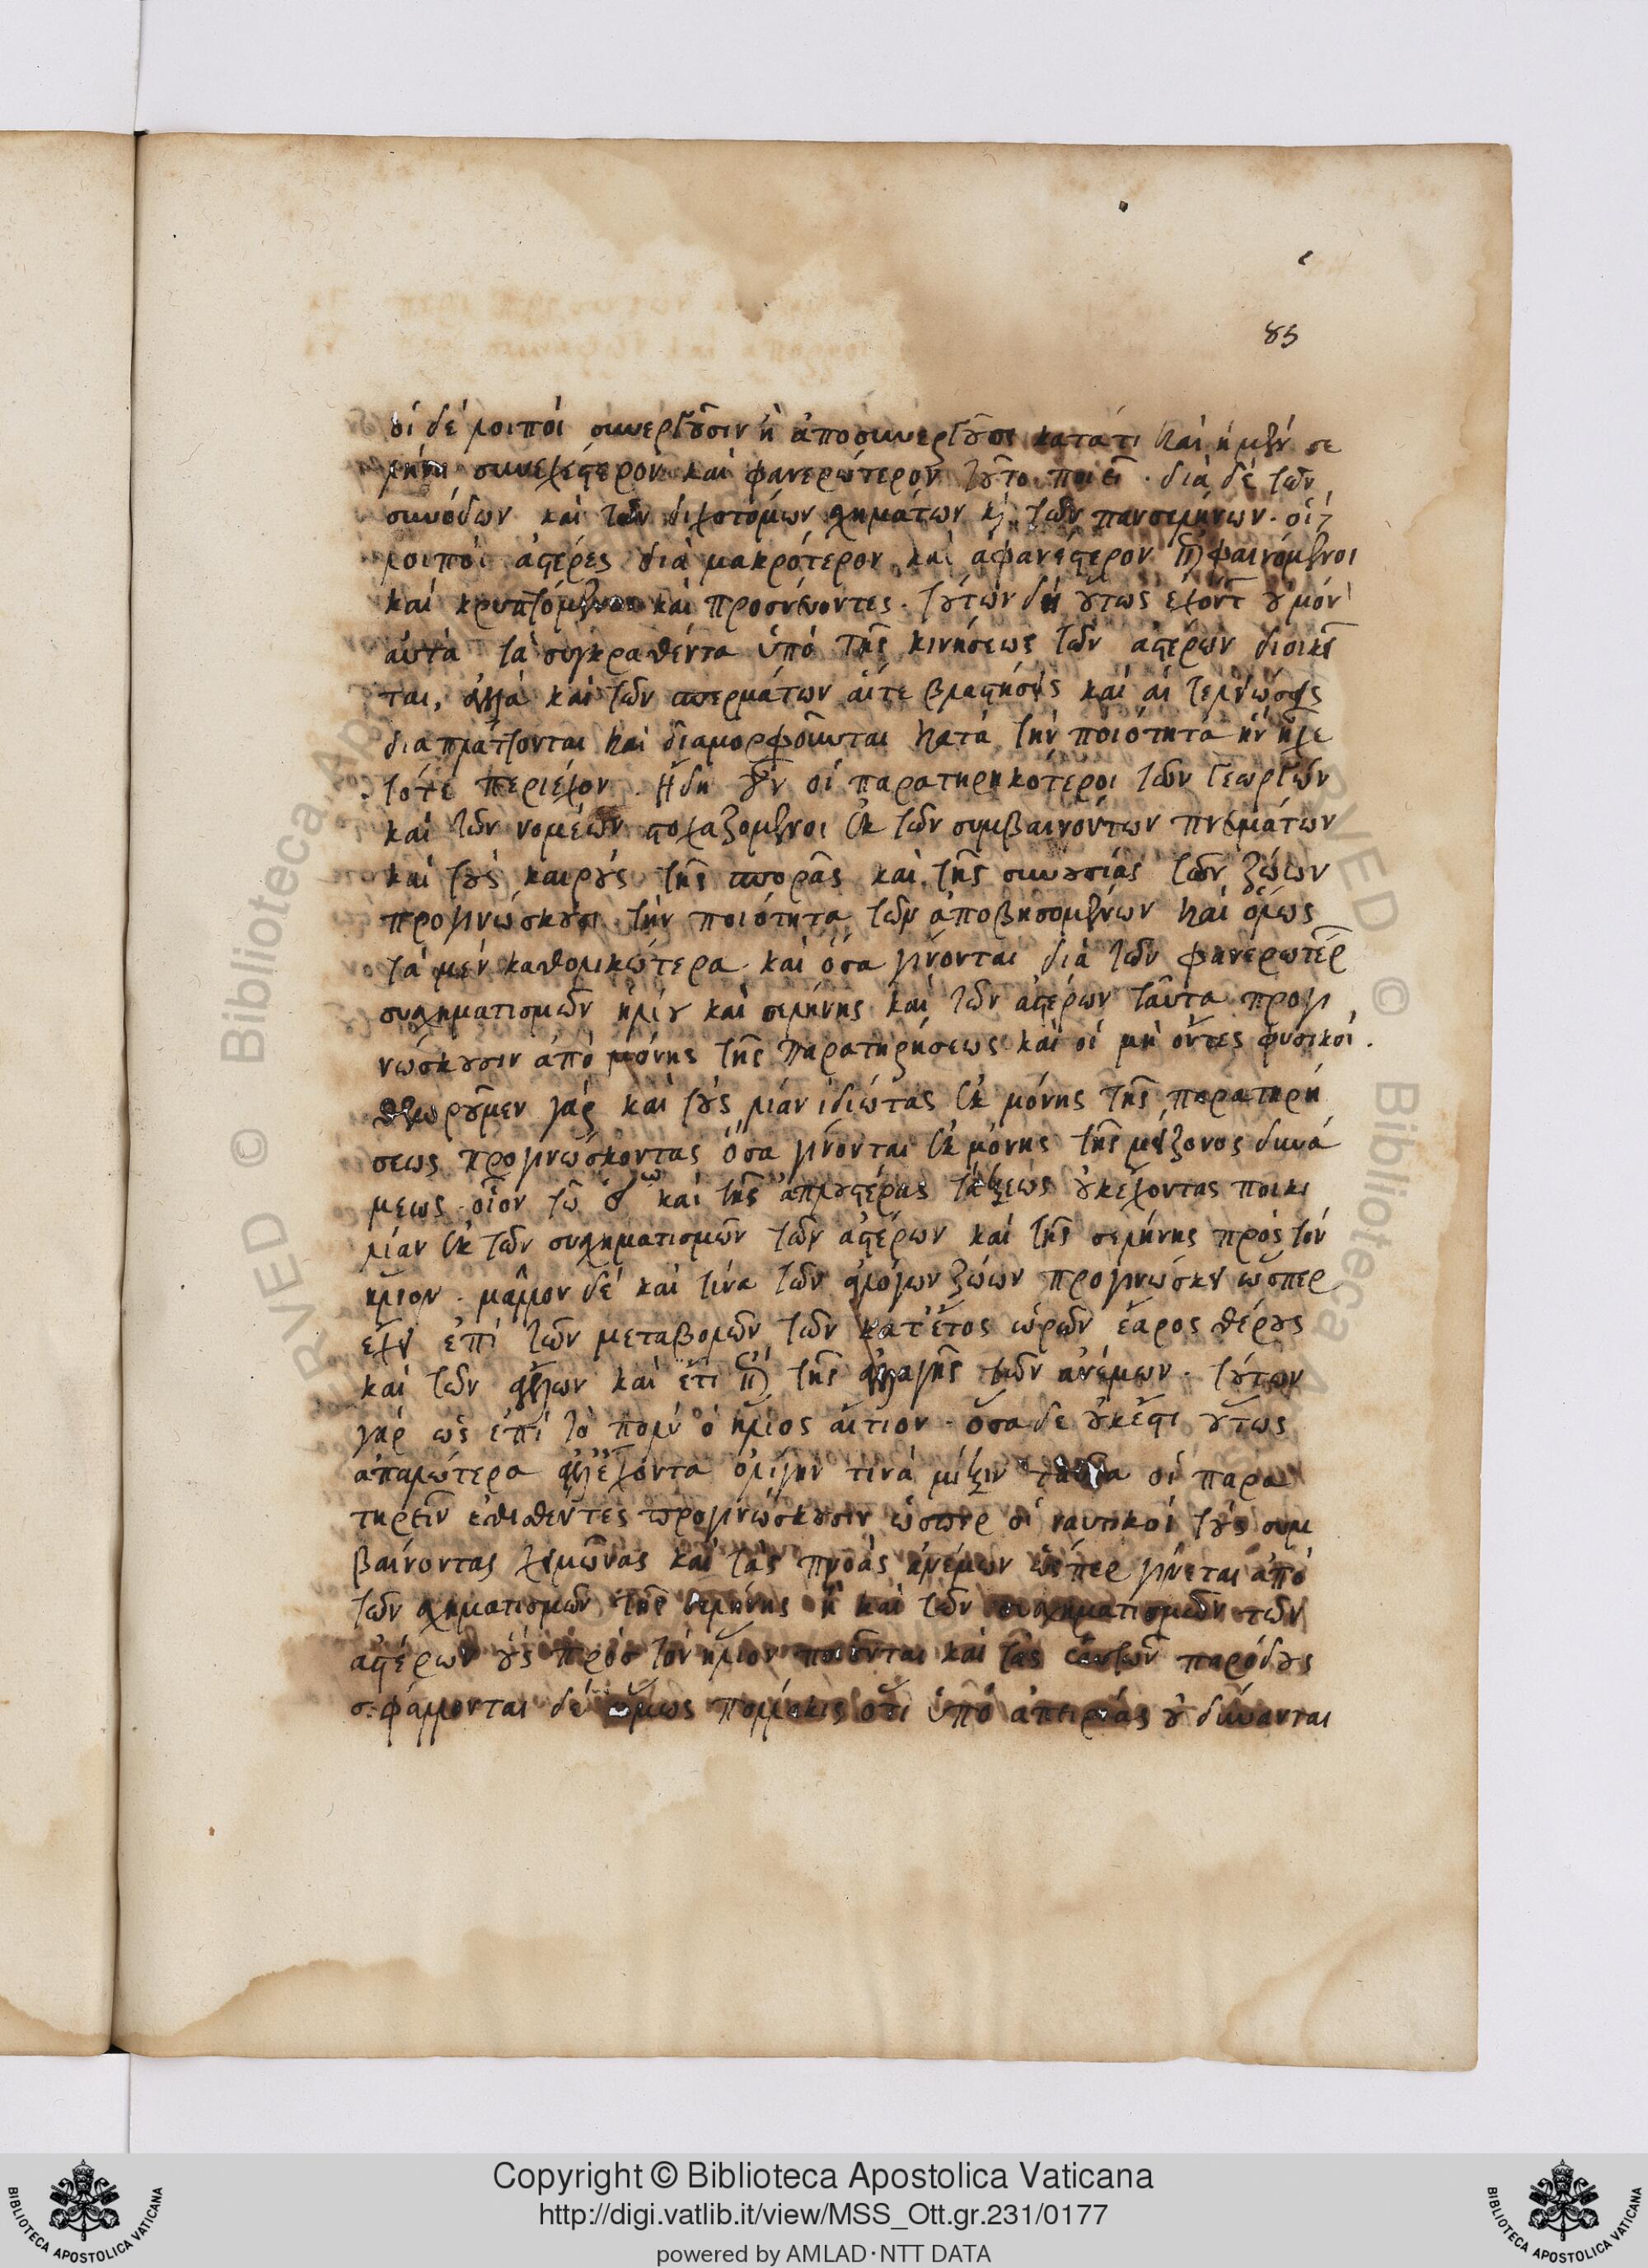 85
οἱ δέ λοιποί συνεργοῦσιν ἢ ἀποσυνεργοῦσι κατάτι καὶ ἡ μὲν σε
λήνη συνεχέστερον καὶ φανερώτερον τοῦτο ποιεῖ . διὰ δὲ τῶν
συνόδων καὶ τῶν διχοτόμων σχημάτων κ) τῶν πανσελήνων . οἱ
λοιποὶ ἀστέρες διὰ μακρότερον καὶ ἀφανέστερον φαινόμενοι
καὶ κρυπτόμενοι καὶ προσνεύοντες . τούτων δὴ οὕτως ἐχόντ οὐ μόν
αὐτὰ τὰ συγκραθέντα ὑπὸ τῆς κινήσεως τῶν ἀστέρων διοικεῖ
ται, ἀλλὰ καὶ τῶν σπερμάτων αἵτε βλαστήσεις καὶ αἱ τελειώσεις
διαπλάττονται καὶ διαμορφοῦνται κατὰ τὴν ποιότητα ἣν εἶχε
τότε περιέχον . ἤδη οὖν οἱ παρατηρηκότεροι τῶν γεωργῶν
καὶ τῶν νομέων στοχαζομενοι ἐκ τῶν συμβαινόντων πνευμάτων
καὶ τοὺς καιροὺς τῆς σπορᾶς καὶ τῆς συνουσίας τῶν ζώων
προγινώσκουσι τὴν ποιότητα τῶν ἀποβησομένων καὶ ὅλως
τὰ μὲν καθολικώτερα . καὶ ὅσα γίνονται διὰ τῶν φανερωτέρ
συσχηματισμῶν ἡλίου καὶ σελήνης καὶ τῶν ἀστέρων ταῦτα προγι
νώσκουσιν ἀπὸ μόνης τῆς παρατηρήσεως καὶ οἱ μὴ ὄντες φυσικοί .
θεωροῦμεν γὰρ καὶ τοὺς λίαν ἰδιώτας ἐκ μόνης τῆς παρατηρή
σεως προγινώσκοντας ὅσα γίνονται ἐκ μόνης τῆς μείζονος δυνά
μεως . οἷον τοῦ καὶ τῆς ἁπλουστέρας τάξεως οὐκ ἔχοντας ποικι
λίαν ἐκ τῶν συσχηματισμῶν τῶν ἀστέρων καὶ τῆς σελήνης πρὸς τὸν
ἥλιον . μᾶλλον δὲ καὶ τινα τῶν ἀλόγων ζώων προγινώσκει ὥσπερ
ἔχει ἐπὶ τῶν μεταβολῶν τῶν κατ' ἔτος ὡρῶν ἔαρος θέρους
καὶ τῶν ἄλλων καὶ ἔτι τῆς ἀλλαγῆς τῶν ἀνέμων . τούτων
γὰρ ὡς ἐπὶ τὸ πολὺ ὁ ἥλιος αἴτιον . ὅσα δε οὐκ ἔστι οὕτως
ἁπλώτερα ἀλλ' ἔχοντα ὀλίγην τινὰ μίξιν ταῦτα οἱ παρα
τηρεῖν ἐθισθέντες προγινώσκουσιν ὥσπερ οἱ ναυτικοὶ τοὺς συμ
βαίνοντας χειμῶνας καὶ τὰς πνοὰς ἀνέμων ὥσπερ γίνεται ἀπὸ
τῶν σχηματισμῶν τῆς σελήνης ἢ καὶ τῶν συσχηματισμῶν τῶν
ἀστέρων οὓς πρὸς τὸν ἥλιον ποιοῦνται καὶ τὰς ἑαυτῶν παρόδους
σφάλλονται δὲ ὅμως πολλάκις ὅτι ὑπὸ ἀπειρίας οὐ δύνανται
Copyright © Biblioteca Apostolica Vaticana
http://digi.vatlib.it/view/MSS_Ott.gr.231/0177
powered by AMLAD·NTT DATA
BIBLIOTECA APOSTOLICA VATICANA
BIBLIOTECA APOSTOLICA VATICANA